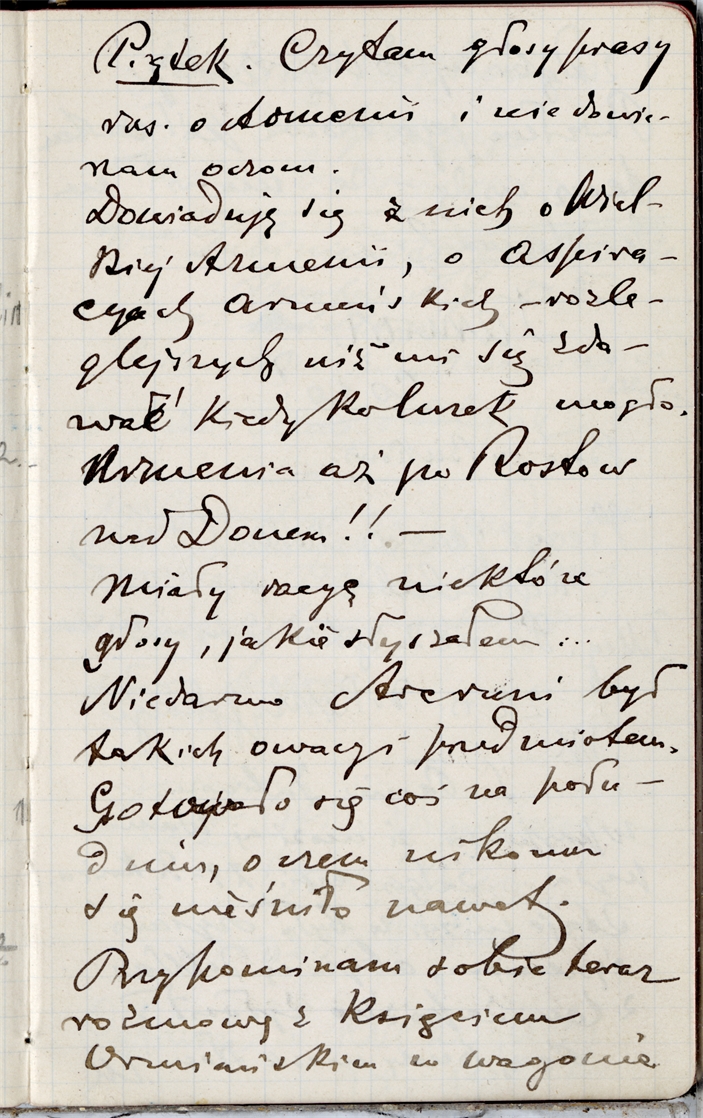 Piątek. Czytam głosy prasy
ros. o Armenii i niedowie-
rzam oczom.
Dowiaduję się z nich o Wiel-
kiej Armenii, o aspira-
cyach armeńskich – rozle-
glejszych niż mi się zda-
wać kiedykolwiek mogło.
Armenia aż po Rostow
nad Donem!! —
Miały racyę niektóre
głosy, jakie słyszałem ...
Niedarmo Arcruni był
takich owacyi przedmiotem.
Gotowało się coś na połu-
dniu, o czem nikomu
się nie śniło nawet.
Przypominam sobie teraz
rozmowę z Księciem
Ormiańskim w wagonie